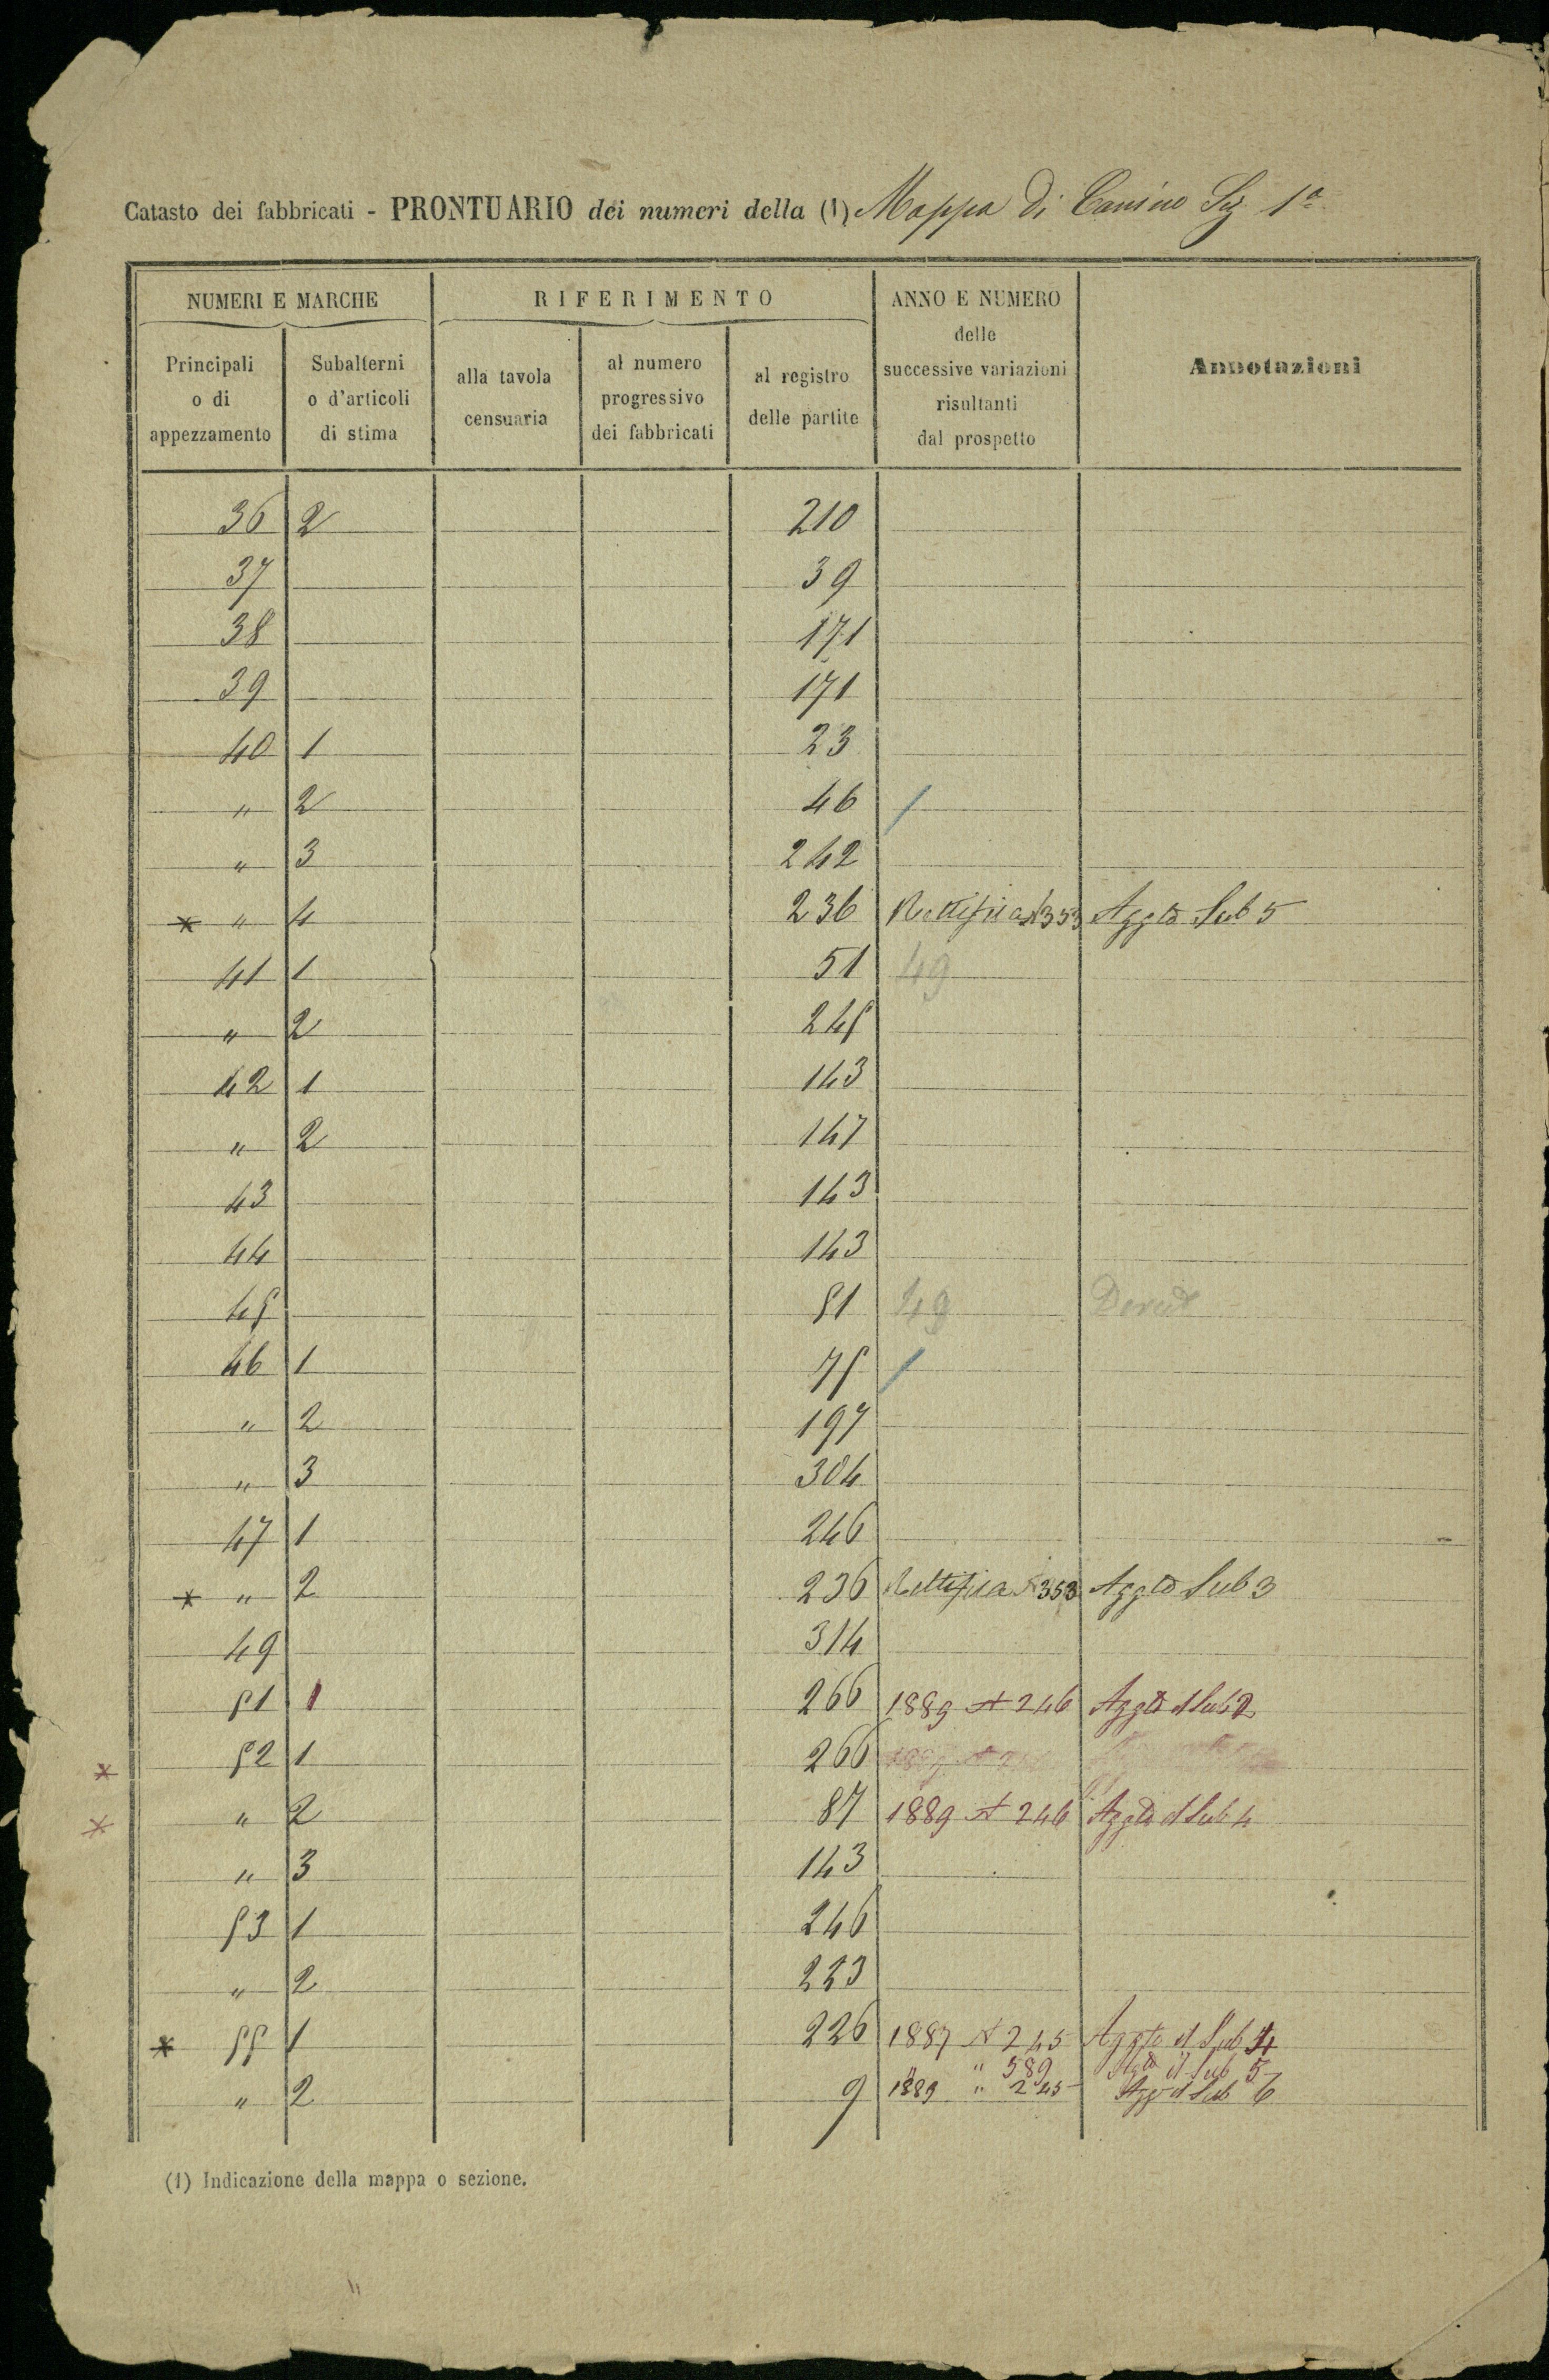 Catasto dei fabbricati - PRONTUARIO dei numeri della (1) Mappa di Canino Sez 1ª
NUMERI E MARCHE
Principali o di appezzamento
Subalterni o d'articoli di stima
RIFERIMENTO
alla tavola censuaria
al numero progressivo dei fabbricati
al registro delle partite
ANNO E NUMERO delle successive variazioni risultanti dal prospetto
Annotazioni
36 2 210
37 39
38 171
39 171
40 1 23
" 2 46 /
" 3 242
* " 4 236 Rettifica N 353 Aggto Sub 5
41 1 51 49
" 2 245
42 1 143
" 2 147
43 143
44 143
45 51 49
46 1 75 /
" 2 197
" 3 304
47 1 246
* " 2 236 Rettifica N 353 Aggto Sub 3
49 314
51 1 266 1889 N 246 Aggto il Sub 2
* 52 1 266
* " 2 87 1889 N 246 Aggto il Sub 4
" 3 143
53 1 246
" 2 223
* 55 1 226 1887 N 245 Aggto il Sub 4
" " 589 Aggto il Sub 5
" 2 9 1889 " 245 Agg il Sub 6
(1) Indicazione della mappa o sezione.